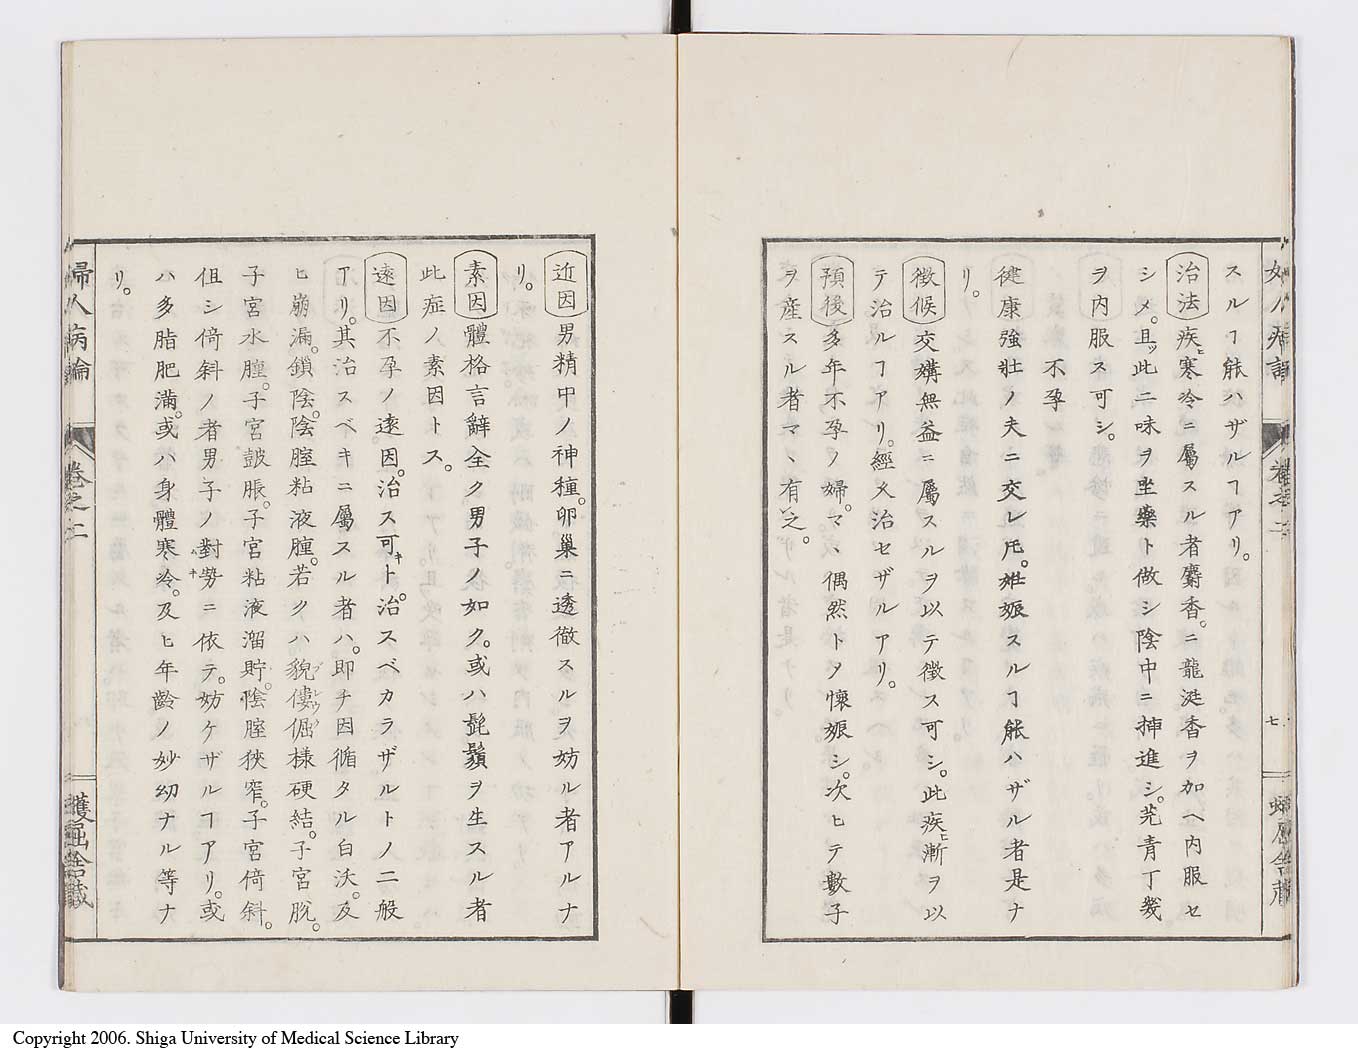 スルヿ能ハザルヿアリ。
治法 疾ヒ寒冷ニ屬スル者麝香。ニ龍涎香ヲ加ヘ内服セ
シメ。且ツ此二味ヲ坐藥ト做シ陰中ニ挿進シ。芫青丁幾
ヲ内服ス可シ。
不孕
健康強壯ノ夫ニ交レ𪜈。妊娠スルヿ能ハザル者是ナ
リ。
徴候 交媾無益ニ屬スルヲ以テ徴ス可シ。此疾ヒ漸ヲ以
テ治ルヿアリ。經久治セザルアリ。
預後 多年不孕ノ婦。マヽ偶然トヲ懷娠シ。次ヒテ數子
ヲ産スル者マヽ有之。
七
近因 男精中ノ神種。卵巢ニ透徹スルヲ妨ル者アルナ
リ。
素因 體格言辭全ク男子ノ如ク。或ハ髭鬚ヲ生スル者
此症ノ素因トス。
遠因 不孕ノ遠因。治ス可キト。治スベカラザルトノ二般
アリ。其治スベキニ屬スル者ハ。即チ因循タル白沃。及
ヒ崩漏。鎖陰。陰腟粘液腫。若クハ貌僂倔様硬結。子宮脱。
子宮水腫。子宮皷脹。子宮粘液溜貯。陰腟狹窄。子宮倚斜。
但シ倚斜ノ者男子ノ對勢ニ依テ。妨ケザルヿアリ。或
ハ多脂肥滿。或ハ身體寒冷。及ヒ年齡ノ妙幼ナル等ナ
リ。
婦人病論 卷之二
蠖屈舎藏
Copyright 2006. Shiga University of Medical Science Library